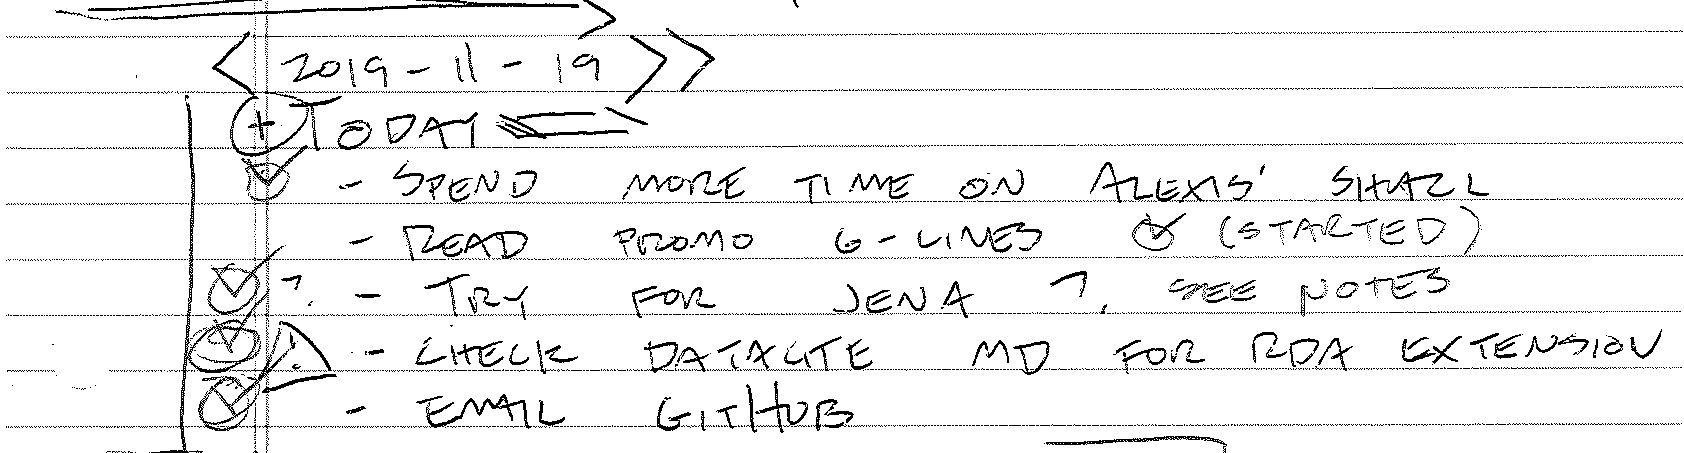 2019-11-19
+ TODAY
- SPEND MORE TIME ON ALEXIS' SHACL
- READ PROMO G-LINES (STARTED)
? - TRY FOR JENA ? SEE NOTES
! - CHECK DATACITE MD FOR RDA EXTENSION
- EMAIL GITHUB